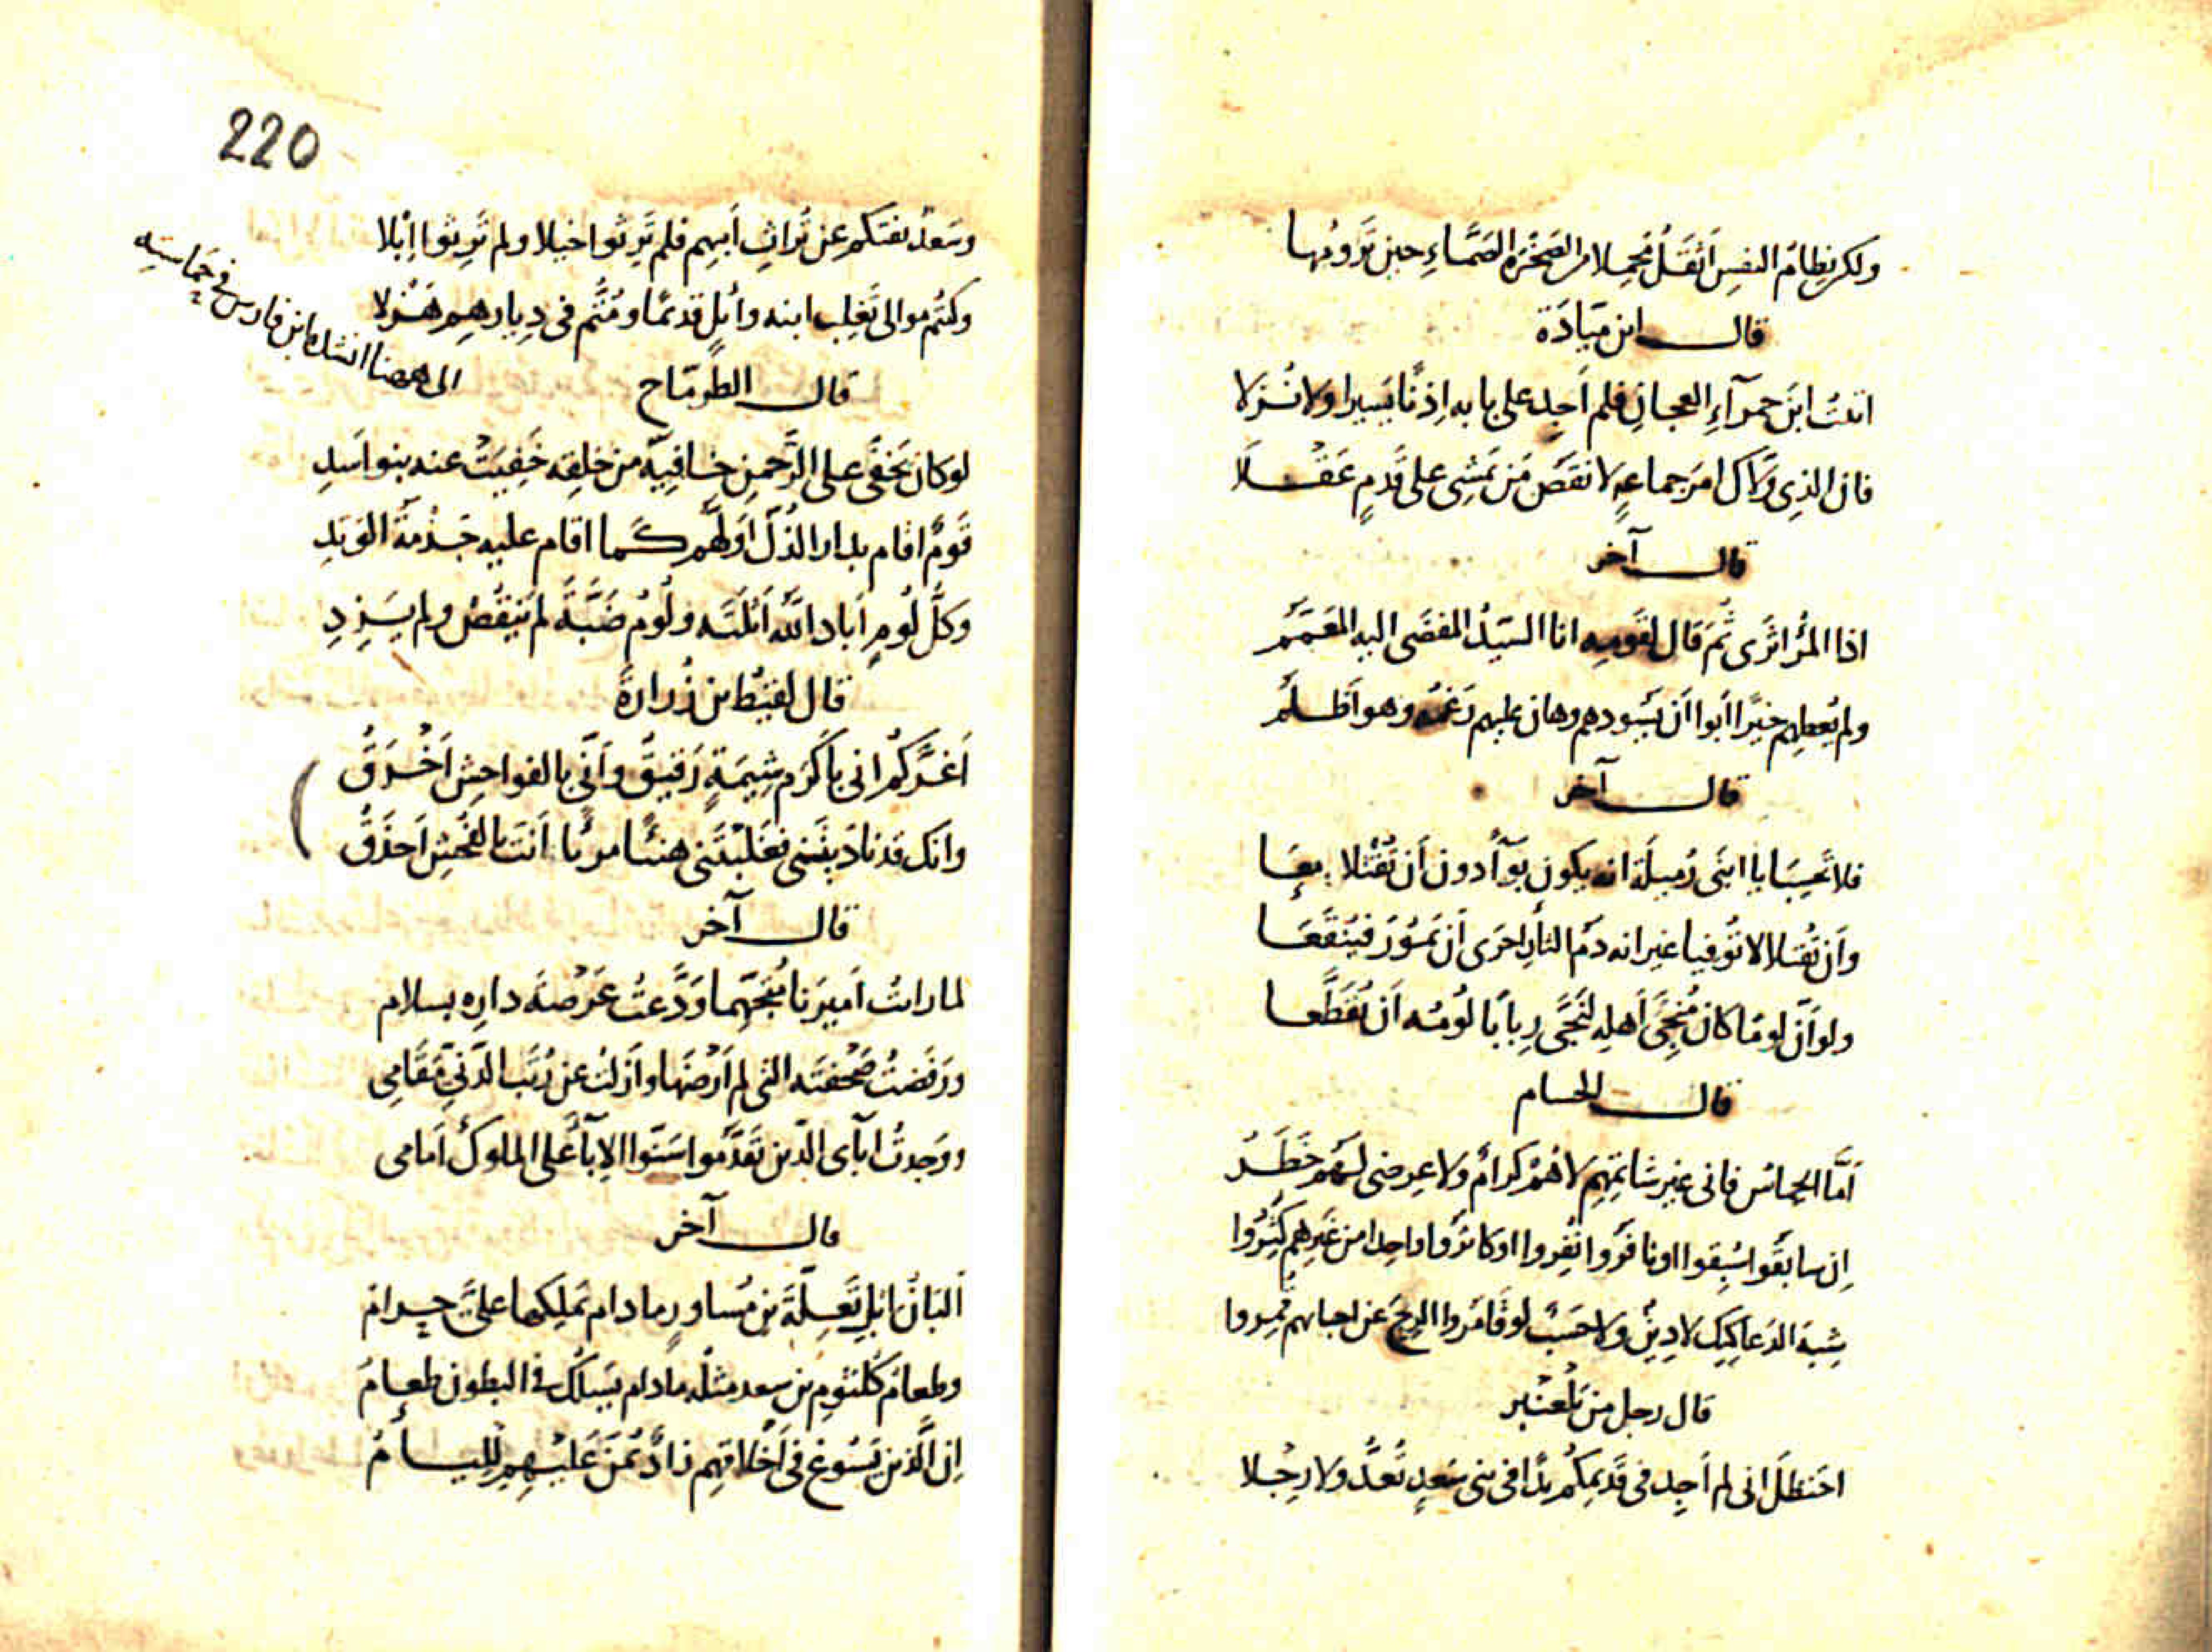 ولكن فِطامُ النفسِ اَثقَلُ مَحمِلا من الصَّخرَة الصَّمَّاءِ حين تَرومُها
قال ابن مَيّادَة
اتيتُ ابنَ حمرآءِ العجانِ فلم اَجِد على بابه اِذنًا يَسيرا ولا نُزلا
فان الذي وَلّاك امرَ جماعةٍ لَانقَصُ مَن يَمشِي على قَدمٍ عَقْلَا
قال آخر
اذا المرُ اَثرَى ثُمَّ قال لقَومِه انا السَيِّدُ المُفضَى اليه المعَمَّمُ
ولم يُعطِهم خيرًا اَبوا اَن يَسُودهم وهان عليهم رَغمُه وهو اَظلَمُ
قال آخر
فلا تَحسِبَا يا ابنَى رُمَيلَة انه يكون بَوآءً دون اَن تُقتَلا معَا
واَن تُقتلا لا تُوفيا غير انه دَم الثأر احرَى اَن يَمُورَ فَيَنقَعَا
ولو اَنّ لومًا كان مُنجِىَ اَهلِه لَنَجَّى رِبابًا لُومُه اَن تُقَطَّعا
قال الحسام
اَمَّا الحِماسُ فانى غير شاتِمِهِم لا هُمْ كرامٌ ولا عِرضى لَهُم خَطَرُ
اِن سابَقُوا سُبِقوا او نافَرُوا نُفِروا او كاثَرُوا واحدا من غَيرِهِم كُثِرُوا
شِبهُ الدَعاكِيك لا دِينٌ ولا حَسَبٌ لو قامَروا الريحَ عن احسابهم قُمِروا
قال رجل من بَلْعنبر
احَنظَلَ انى لم اَجِد فى قَديمِكُم يدًا فى بنى سَعدٍ تُعَدُّ ولا رِجْلا
220
وسَعدٌ نفتكم عن تُراثِ اَبيهِم فلم تَرِثوا خيلا ولم تَرِثوا اِبْلا
وكنتُم موالى تَغلِب ابنه وائلٍ قديمًا ومُتُّم فى دِيارهِم هَزْلا
الى ههنا انشده ابن فارس في حَماستِه
قال الطرِمّاح
لو كان يَخفَى على الرَّحمنِ خافِيَةٌ من خلقِه خَفِيَتْ عنه بنو اَسَدِ
قَومٌ اقام بدار الذُلّ اَوّلُهُم كما اقام عليه جَذْمَةُ الوَتِدِ
وكلُّ لُومٍ اَباد اللّٰه اَثلَتَه ولُومُ ضَبَّةَ لم يَنقُصْ ولم يَزِدِ
قال لقيط بن زُرارة
اَغَرَّكُم انى باَكرَم شِيمَةٍ رَفيقٌ واَنّى بالفواحِش اَخْرَقُ
وانك قد فاحشتنى فغَلبْتَنى هنئا مرئا اَنتَ بالفُحشِ اَحذَقُ
قال آخر
لما راىتُ اَميرَنا مُتَجَهِّما وَدَّعتُ عَرْصَة دارِه بسلام
ورَفَضتُ صَحْفَتَه التى لم اَرْضَها واَزَلتُ عن رُتَب الدَّنِىِّ مَقَامِى
ووَجدتُ آباى الّذين تَقَدَّموا سَنّوا الاِبآءَ على الملوك اَمامى
قال آخر
اَلبانُ اِبلِ تَعِلَّةَ بن مُساورٍ ما دام يَملِكها علىَّ حرامُ
وطعامُ كُلثومِ بن سعد مثلُه ما دام يَسلُكُ فى البطون طعامُ
اِن الّذين يَسُوغ فى اَحْلاقِهِم زادٌ يُمَنُّ عَلَيْهِم لَلِيامُ